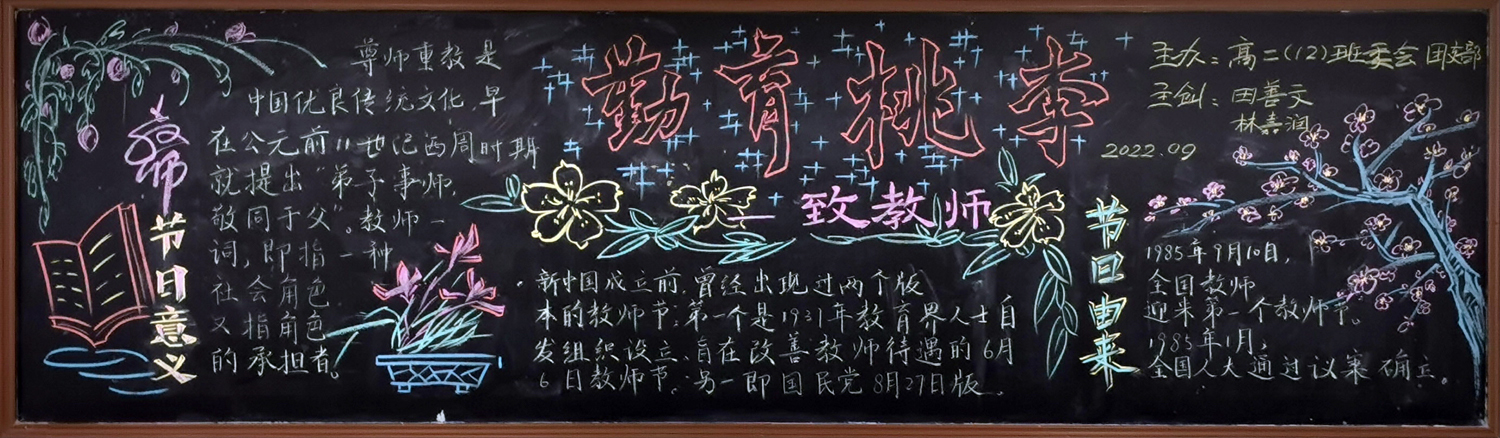 教师
节日意义
尊师重教是
中国优良传统文化,早
在公元前11世纪西周时期
就提出“弟子事师,
敬同于父”。教师一
词,即指一种
社会角色,
又指角色
的承担者。
勤育桃李
— 致教师
新中国成立前,曾经出现过两个版
本的教师节:第一个是1931年教育界人士自
发组织设立、旨在改善教师待遇的6月
6日教师节。另一即国民党8月27日版。
主办:高二(12)班委会 团支部
主创:田善文
林嘉润
2022.09
节日由来
1985年9月10日,
全国教师
迎来第一个教师节。
1985年1月,
全国人大通过议案确立。